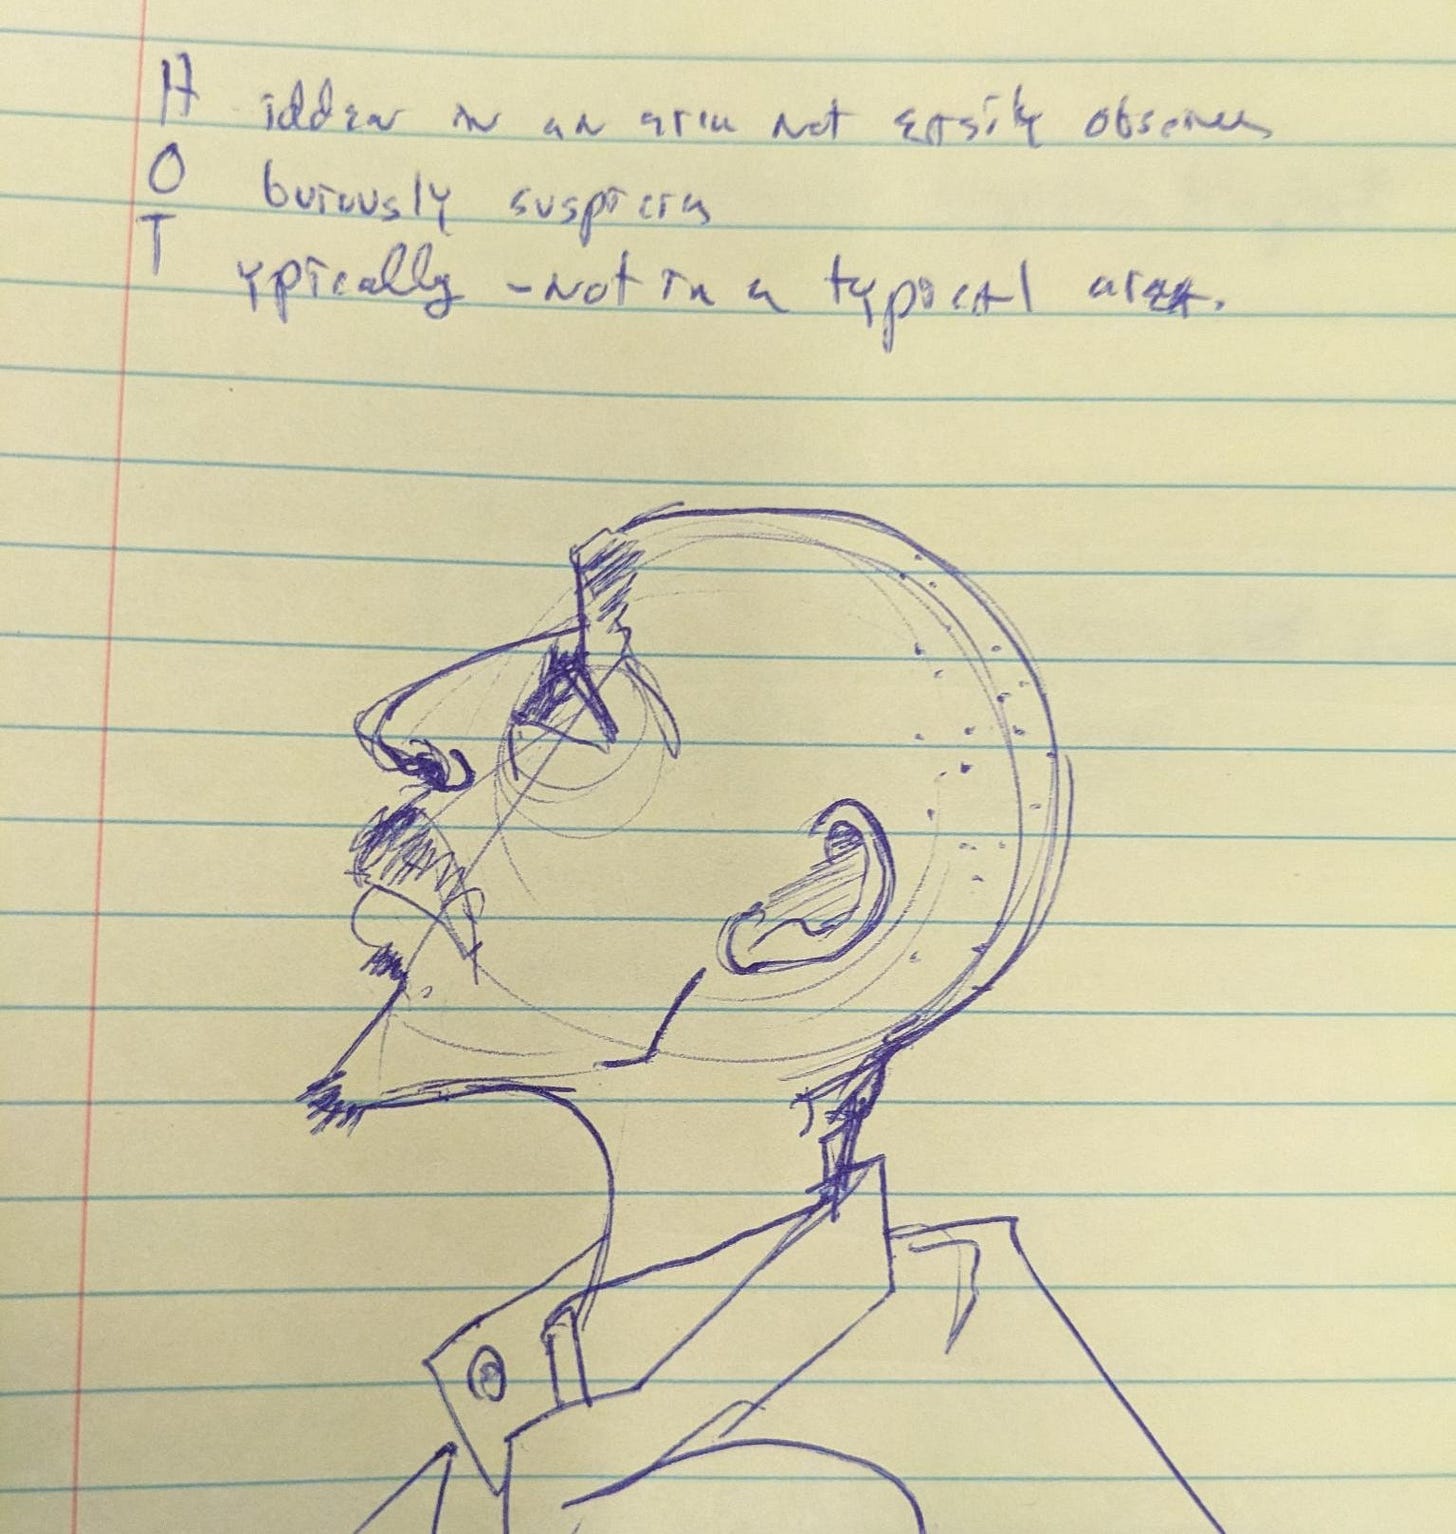 H idden in an area not easily observed
O bviously suspicious
T ypically - not in a typical area.